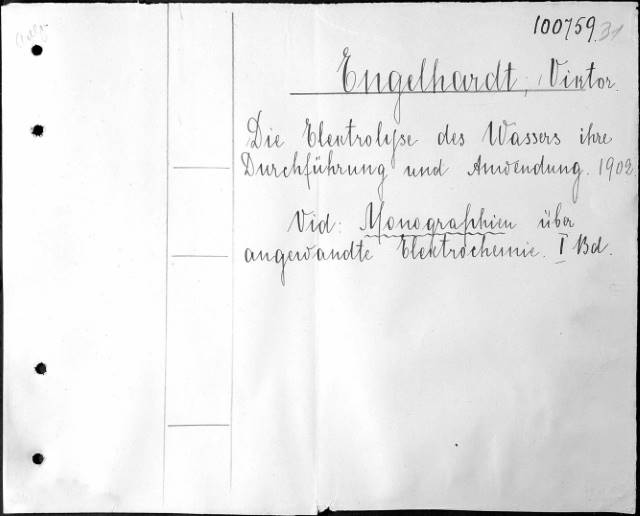 100759 31
Engelhardt, Viktor.
Die Elektrolyse des Wassers ihre
Durchführung und Anwendung. 1902
Vid: Monographien über
angewandte Elektrochemie. I Bd.